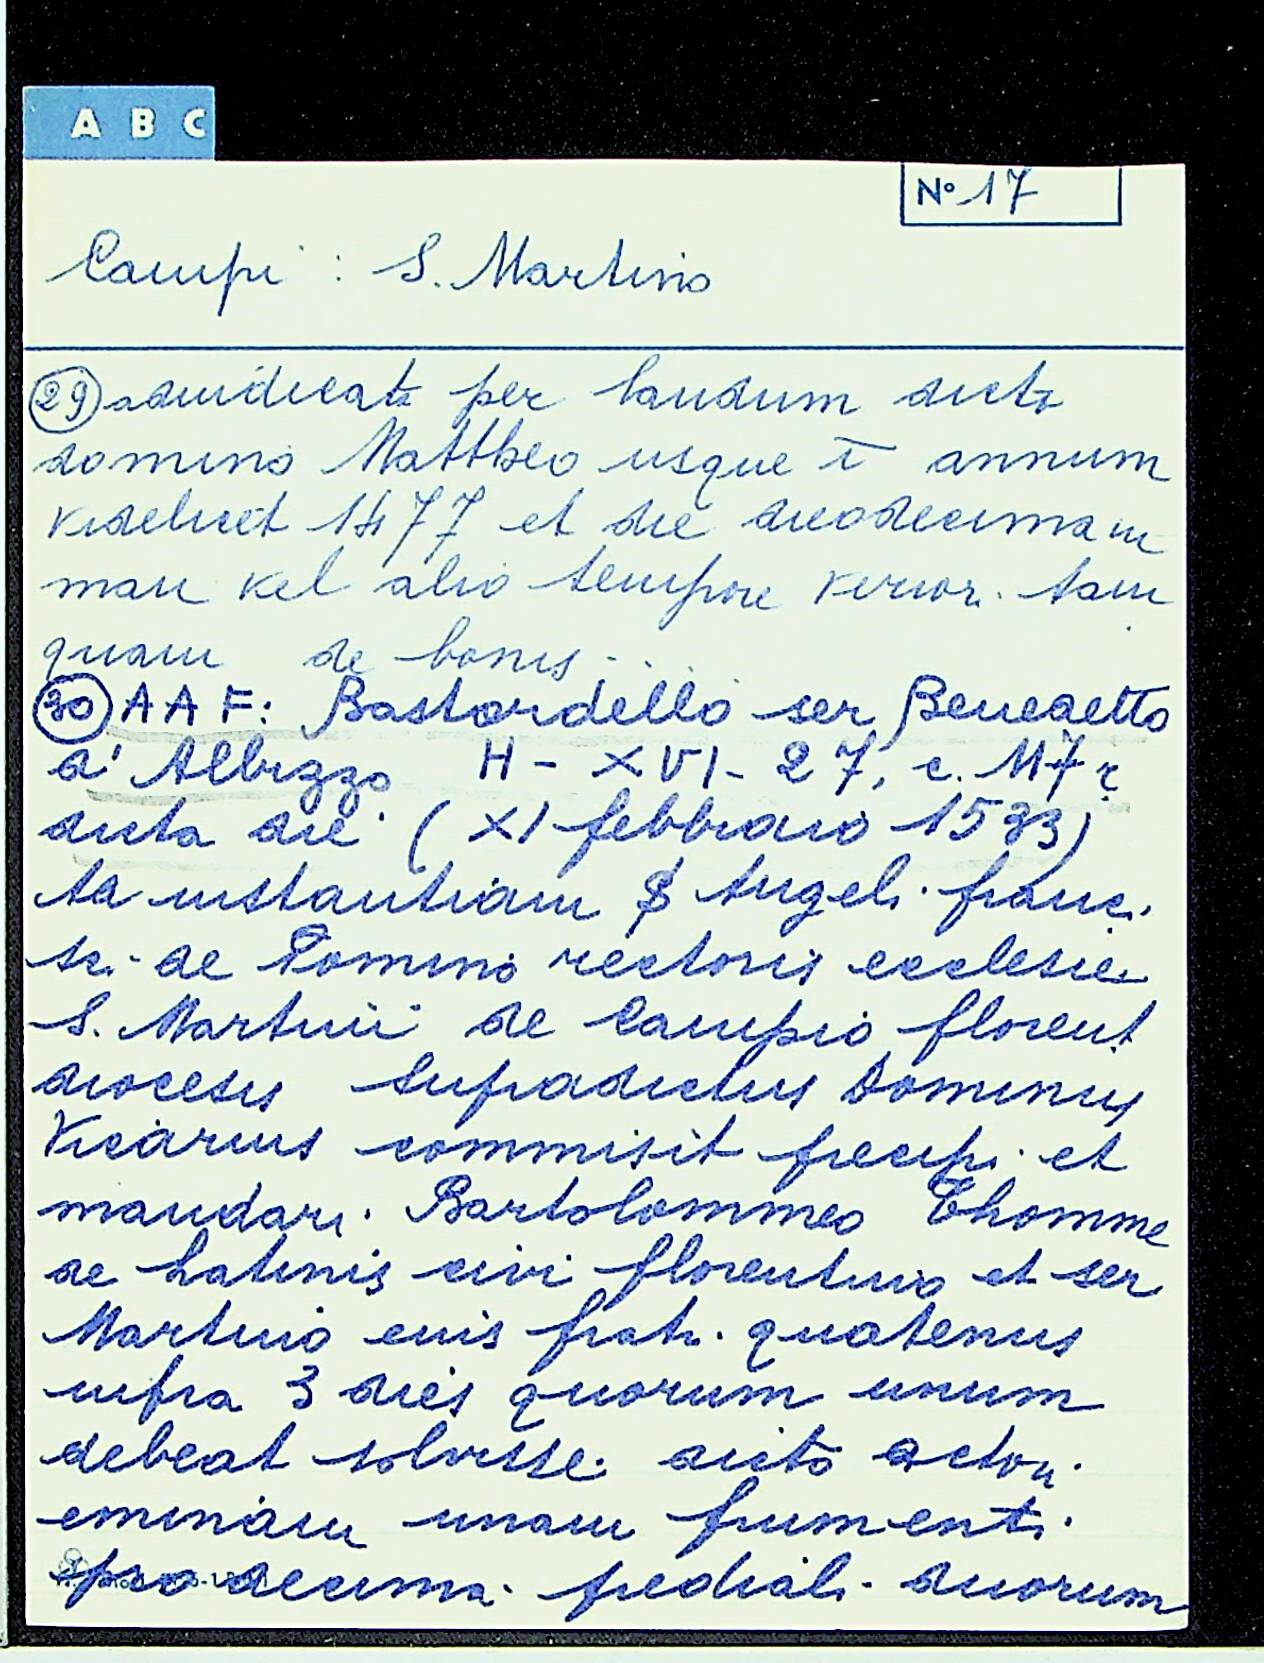 A B C
Nº 17
Campi : S. Martino
(29) adiudicata per laudum dicto
domino Mattheo usque ī annum
videlicet 1477 et die duodecima m
maii vel alio tempore verior. tam
quam de bonis...
(30) AAF: Bastardello ser Benedetto
d'Albizzo H - XVI - 27, c. 117 r
dicta die (XI febbraio 1533)
ta instantiam Angeli franc.
de Pomino rectoris ecclesie
S. Martini de Campio florent
diocesis supradictus Dominus
Vicarius commisit precipi et
mandari. Bartolommeo Thomme
de Latinis civi florentino et ser
Martino eius fratr. quatenus
infra 3 dies quorum unum
debeat solvisse dicto actori
eminam unam frumenti.
pro decima. predial. duorum